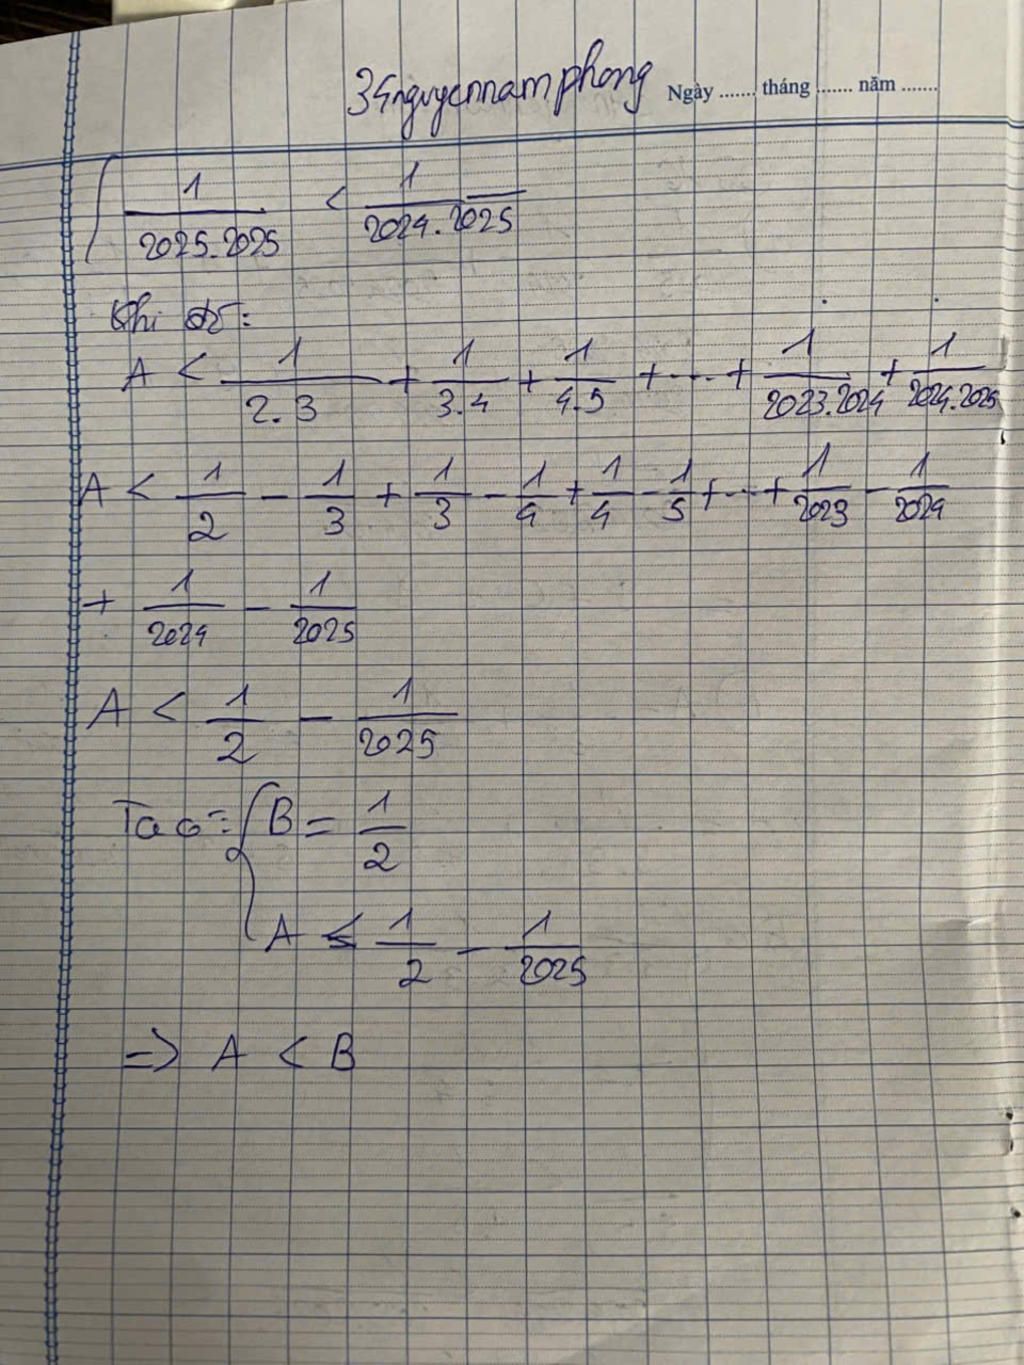 34nguyennamphong Ngày ....... tháng ....... năm .......
1/2025.2025 < 1/2024.2025
Khi đó:
A < 1/2.3 + 1/3.4 + 1/4.5 + ... + 1/2023.2024 + 1/2024.2025
A < 1/2 - 1/3 + 1/3 - 1/4 + 1/4 - 1/5 + ... + 1/2023 - 1/2024
+ 1/2024 - 1/2025
A < 1/2 - 1/2025
Ta có: { B = 1/2
A ≤ 1/2 - 1/2025
=> A < B